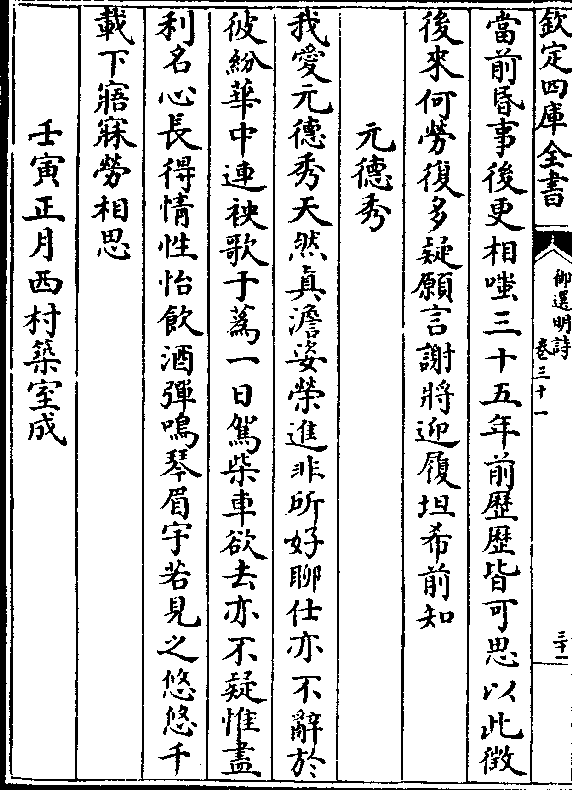 欽定四庫全書
御選明詩
卷三十一
三十一
當前昏事後更相嗤三十五年前歷歷皆可思以此徵
後來何勞復多疑願言謝將迎履坦希前知
元德秀
我愛元德秀天然真澹姿榮進非所好聊仕亦不辭於
彼紛華中連袂歌于蒍一日駕柴車欲去亦不疑惟盡
利名心長得情性怡飲酒彈鳴琴眉宇若見之悠悠千
載下寤寐勞相思
壬寅正月西村築室成